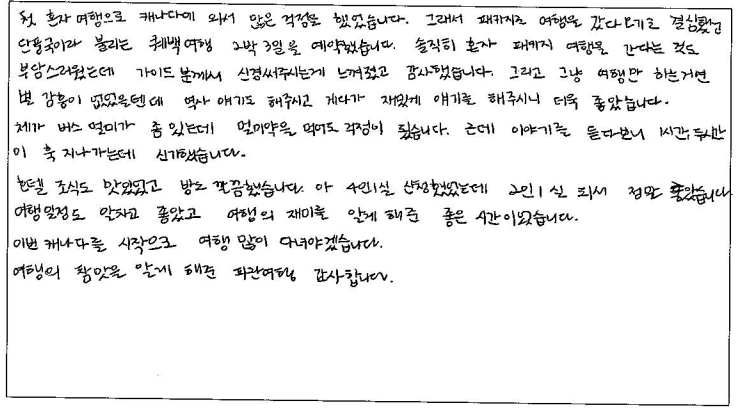 첫 혼자 여행으로 캐나다에 와서 많은 걱정을 했었습니다. 그래서 패키지로 여행을 갔다오기로 결심했고
단풍국이라 불리는 퀘백여행 2박 3일을 예약했습니다. 솔직히 혼자 패키지 여행을 간다는 것도
부담스러웠는데 가이드 분께서 신경써주시는게 느껴졌고 감사했습니다. 그리고 그냥 여행만 하는거면
별 감흥이 없었을텐데 역사 얘기도 해주시고 게다가 재밌게 얘기를 해주시니 더욱 좋았습니다.
제가 버스 멀미가 좀 있는데 멀미약을 먹어도 걱정이 됬습니다. 근데 이야기를 듣다보니 1시간, 두시간
이 훅 지나가는데 신기했습니다.
호텔 조식도 맛있었고 방도 깔끔했습니다. 아 4인1실 신청했었는데 2인1실 되서 정말 좋았습니다
여행일정도 알차고 좋았고 여행의 재미를 알게 해준 좋은 시간이었습니다.
이번 캐나다를 시작으로 여행 많이 다녀야겠습니다.
여행의 참맛을 알게 해준 파란여행 감사합니다.